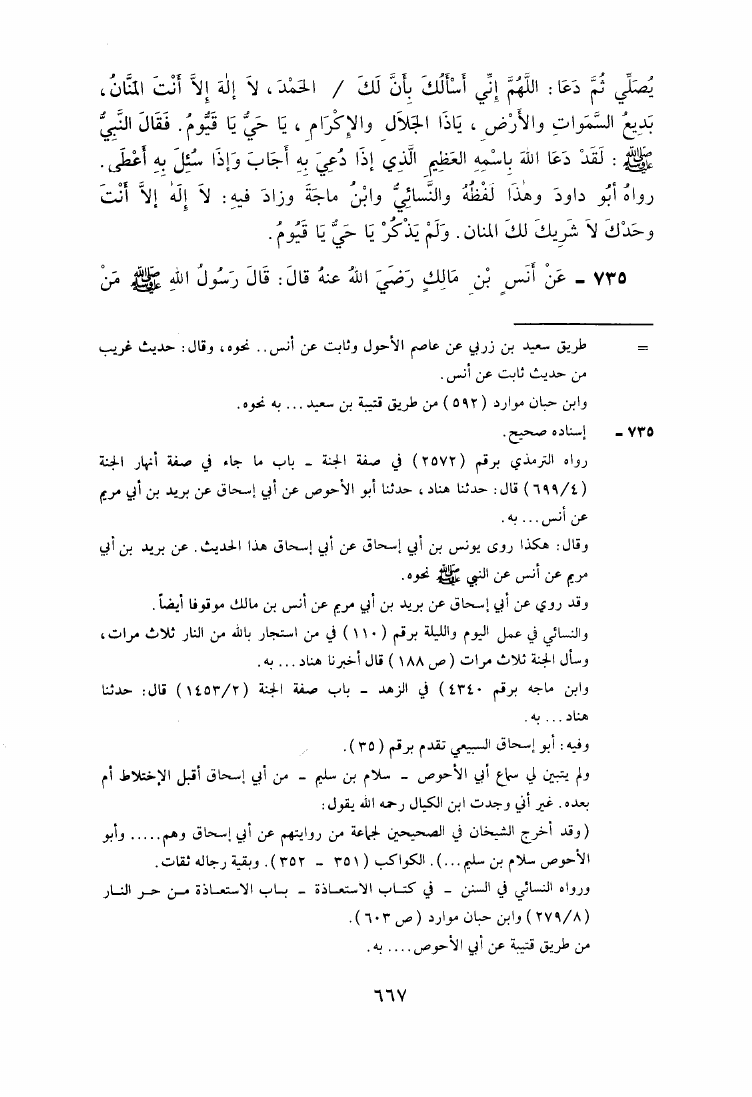 يُصَلِّي ثُمَّ دَعَا: اللَّهُمَّ إِنِّي أَسْأَلُكَ بِأَنَّ لَكَ / الحَمْدَ، لاَ إِلٰهَ إِلاَّ أَنْتَ المَنَّانُ،
بَدِيعُ السَّمَواتِ والأَرْضِ، يَاذَا الجَلاَلِ والإِكْرَامِ، يَا حَيُّ يَا قَيُّومُ. فَقَالَ النَّبِيُّ
ﷺ: لَقَدْ دَعَا اللهَ بِاسْمِهِ العَظِيمِ الَّذِي إِذَا دُعِيَ بِهِ أَجَابَ وَإِذَا سُئِلَ بِهِ أَعْطَى.
رواهُ أَبُو داودَ وهٰذَا لَفْظُهُ والنَّسائِيُّ وابْنُ ماجَةَ وزادَ فيهِ: لاَ إِلَهَ إلاَّ أَنْتَ
وحَدْكَ لاَ شَرِيكَ لكَ المنان. ولَمْ يَذْكُرْ يَا حَيُّ يَا قَيُّومُ.
٧٣٥ - عَنْ أَنَسِ بْنِ مَالِكٍ رَضِيَ اللهُ عنهُ قالَ: قَالَ رَسُولُ اللهِ ﷺ مَنْ
= طريق سعيد بن زربي عن عاصم الأحول وثابت عن أنس.. نحوه، وقال: حديث غريب
من حديث ثابت عن أنس.
وابن حبان موارد (٥٩٢) من طريق قتيبة بن سعيد... به نحوه.
٧٣٥ - إسناده صحيح.
رواه الترمذي برقم (٢٥٧٢) في صفة الجنة - باب ما جاء في صفة أنهار الجنة
(٦٩٩/٤) قال: حدثنا هناد، حدثنا أبو الأحوص عن أبي إسحاق عن بريد بن أبي مريم
عن أنس... به.
وقال: هكذا روى يونس بن أبي إسحاق عن أبي إسحاق هذا الحديث. عن بريد بن أبي
مريم عن أنس عن النبي ﷺ نحوه.
وقد روي عن أبي إسحاق عن بريد بن أبي مريم عن أنس بن مالك موقوفا أيضاً.
والنسائي في عمل اليوم والليلة برقم (١١٠) في من استجار بالله من النار ثلاث مرات،
وسأل الجنة ثلاث مرات (ص ١٨٨) قال أخبرنا هناد... به.
وابن ماجه برقم ٤٣٤٠) في الزهد - باب صفة الجنة (١٤٥٣/٢) قال: حدثنا
هناد... به.
وفيه: أبو إسحاق السبيعي تقدم برقم (٣٥).
ولم يتبين لي سماع أبي الأحوص - سلام بن سليم - من أبي إسحاق أقبل الإختلاط أم
بعده. غير أني وجدت ابن الكيال رحمه الله يقول:
(وقد أخرج الشيخان في الصحيحين لجماعة من روايتهم عن أبي إسحاق وهم..... وأبو
الأحوص سلام بن سليم...). الكواكب (٣٥١ - ٣٥٢). وبقية رجاله ثقات.
ورواه النسائي في السنن - في كتاب الاستعاذة - باب الاستعاذة من حر النار
(٢٧٩/٨) وابن حبان موارد (ص ٦٠٣).
من طريق قتيبة عن أبي الأحوص.... به.
٦٦٧